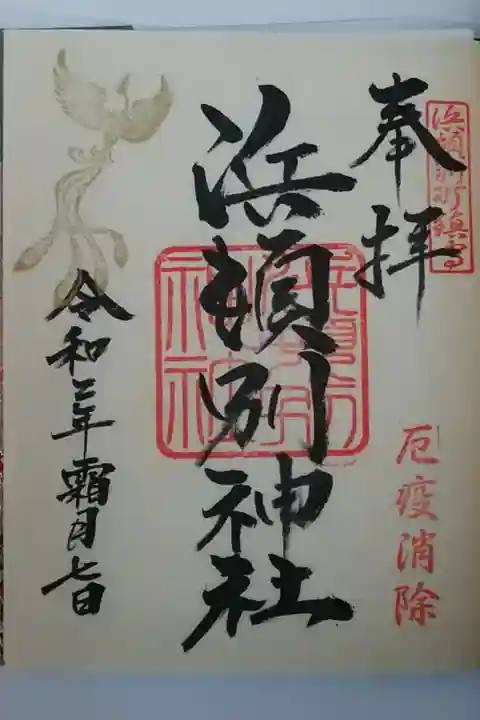 浜頓別町鎮守
奉拝
厄疫消除
浜頓別神社
令和二年霜月七日